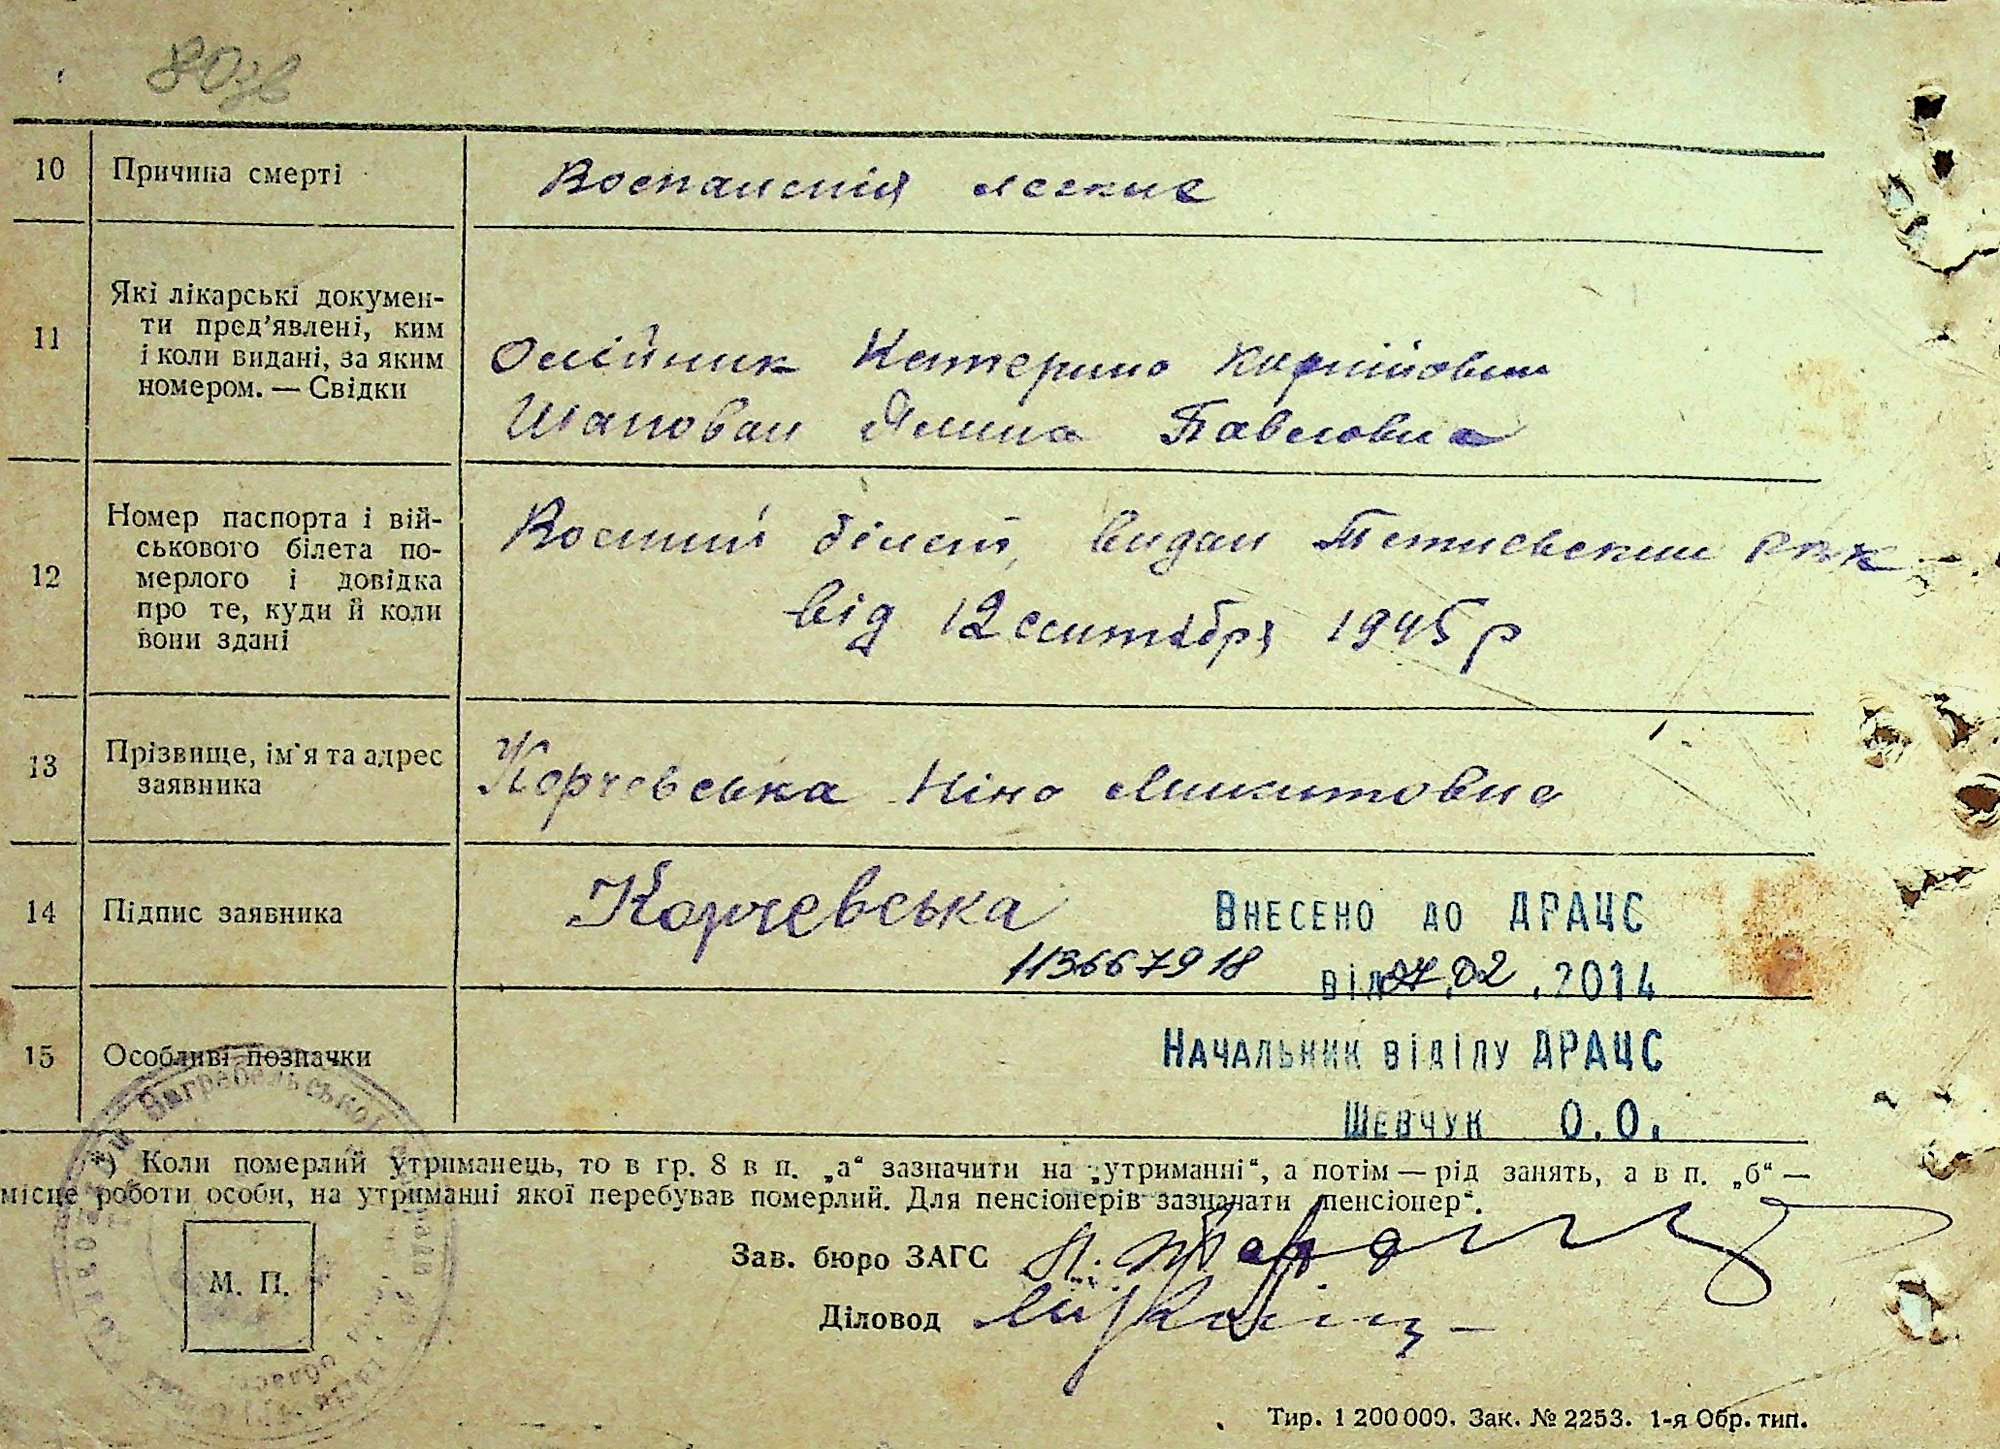 80зв
10 Причина смерті Воспаленія легких
11 Які лікарські докумен-
ти пред’явлені, ким
і коли видані, за яким
номером. — Свідки
Олійник Катерина
Шаповал Павловна
12 Номер паспорта і вій-
ськового білета по-
мерлого і довідка
про те, куди й коли
вони здані
Воєний білєт, видан Тетиевским РВК
від 12 сентября 1945 р
13 Прізвище, ім'я та адрес
заявника
Корчевська Ніна Микитовна
14 Підпис заявника Корчевська
Внесено до ДРАЦС
113667918 від 07.02.2014
15 Особливі позначки
Начальник відділу ДРАЦС
Шевчук О.О.
*) Коли померлий утриманець, то в гр. 8 в п. „а“ зазначити на „утриманні“, а потім — рід занять, а в п. „б“ —
місце роботи особи, на утриманні якої перебував померлий. Для пенсіонерів зазначати „пенсіонер“.
Зав. бюро ЗАГС
М. П.
Діловод
Тир. 1 200 000. Зак. № 2253. 1-я Обр. тип.